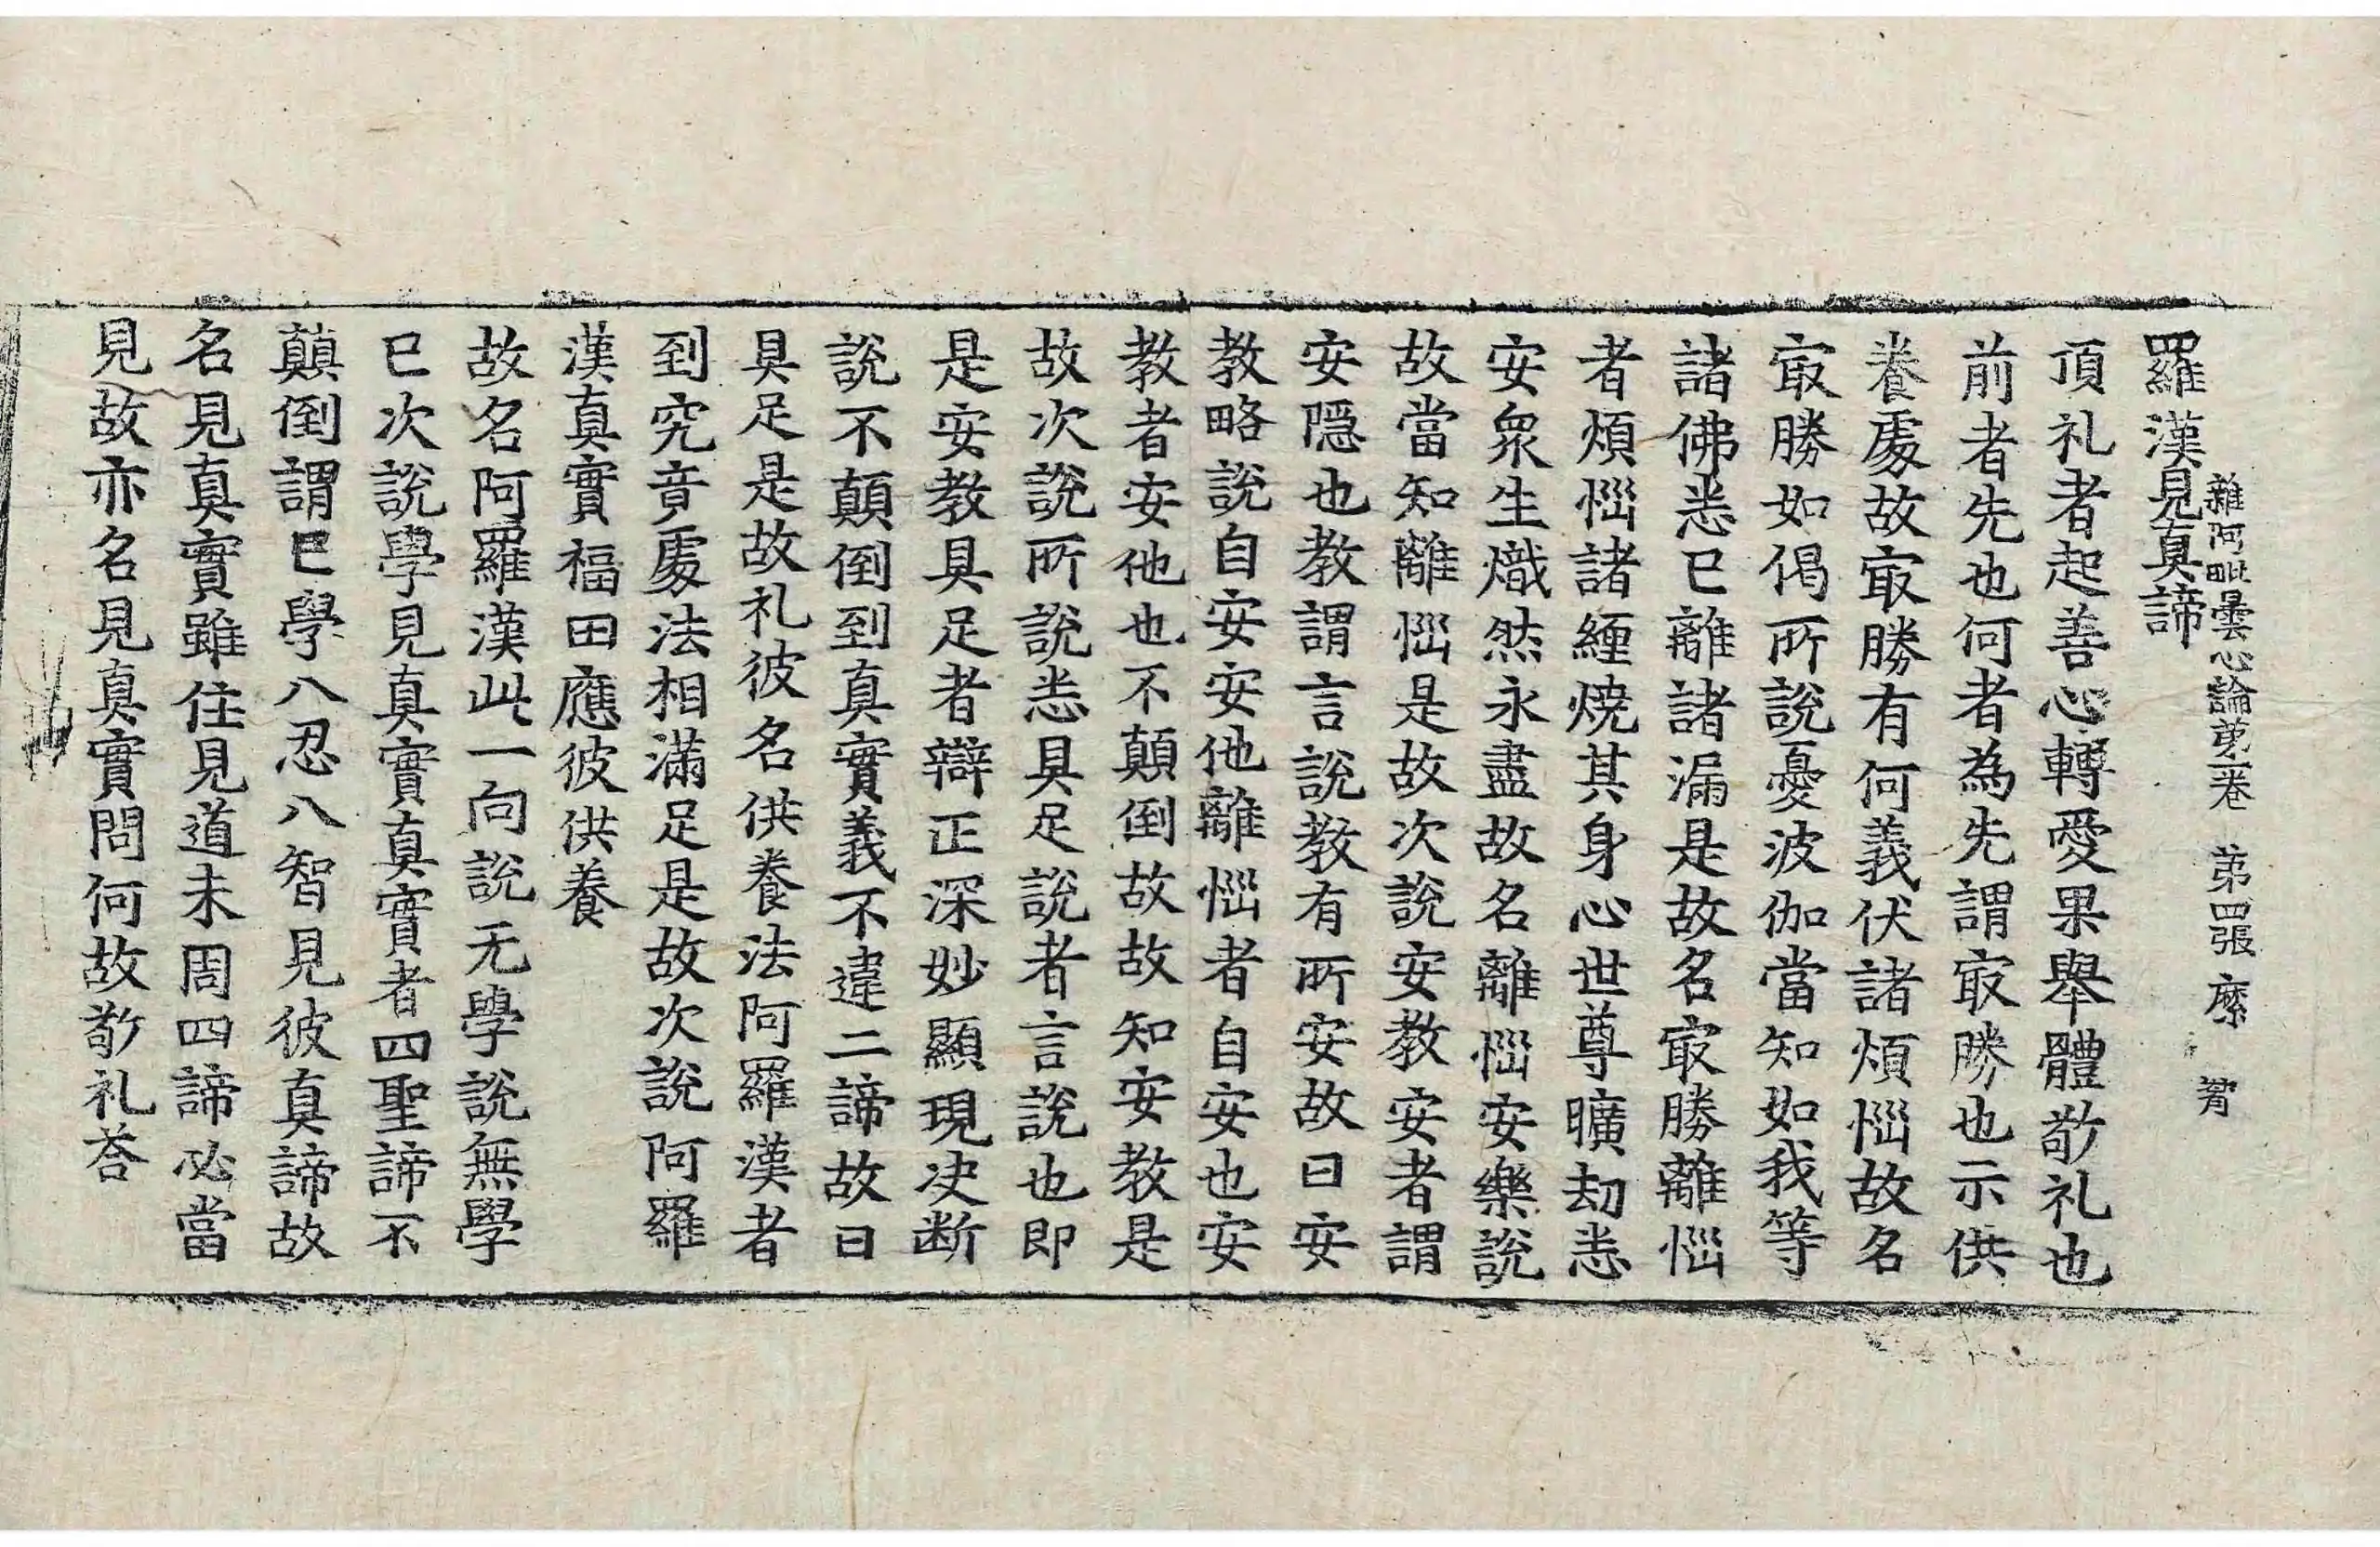 雜阿毗曇心論第一卷　第四張　縻
羅漢見真諦
頂礼者起善心轉愛果舉體敬礼也
前者先也何者為先謂㝡勝也示供
養處故㝡勝有何義伏諸煩惱故名
㝡勝如偈所說憂波伽當知如我等
諸佛悉已離諸漏是故名㝡勝離惱
者煩惱諸纏燒其身心世尊曠劫悉
安衆生熾然永盡故名離惱安樂說
故當知離惱是故次說安教安者謂
安隱也教謂言說教有所安故曰安
教略說自安安他離惱者自安也安
教者安他也不顛倒故故知安教是
故次說所說悉具足說者言說也即
是安教具足者辯正深妙顯現决断
說不顛倒到真實義不違二諦故曰
具足是故礼彼名供養法阿羅漢者
到究竟處法相滿足是故次說阿羅
漢真實福田應彼供養
故名阿羅漢此一向說无學說無學
已次說學見真實真實者四聖諦不
顛倒謂已學八忍八智見彼真諦故
名見真實雖住見道未周四諦必當
見故亦名見真實問何故敬礼荅